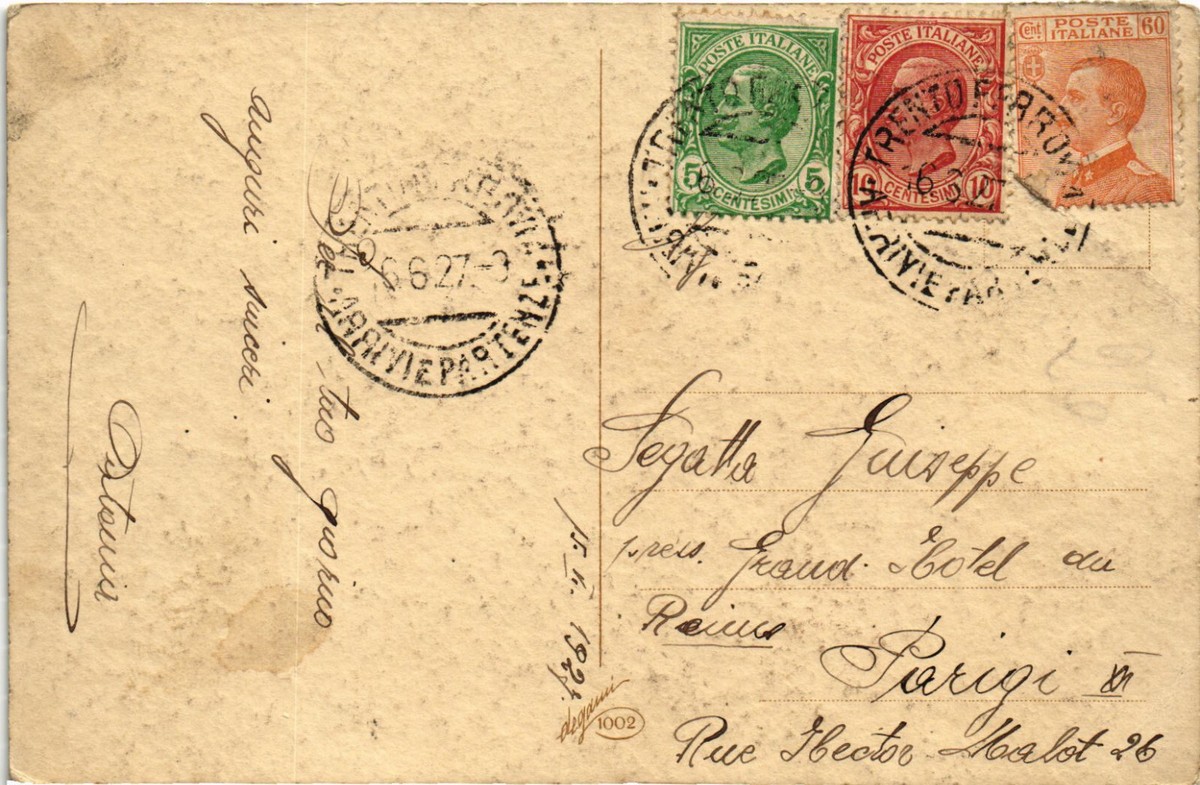 POSTE ITALIANE
5 CENTESIMI 5
POSTE ITALIANE
10 CENTESIMI 10
Cent POSTE ITALIANE 60
TRENTO FERROVIA
ARRIVI E PARTENZE
6.6.27
ARRIVI E PARTENZE
tuo giorno
auguri sinceri
1927
Segatta Giuseppe
press. Grand. Hotel du
Reims
Parigi XII
Rue Hector Malot 26
degami
1002